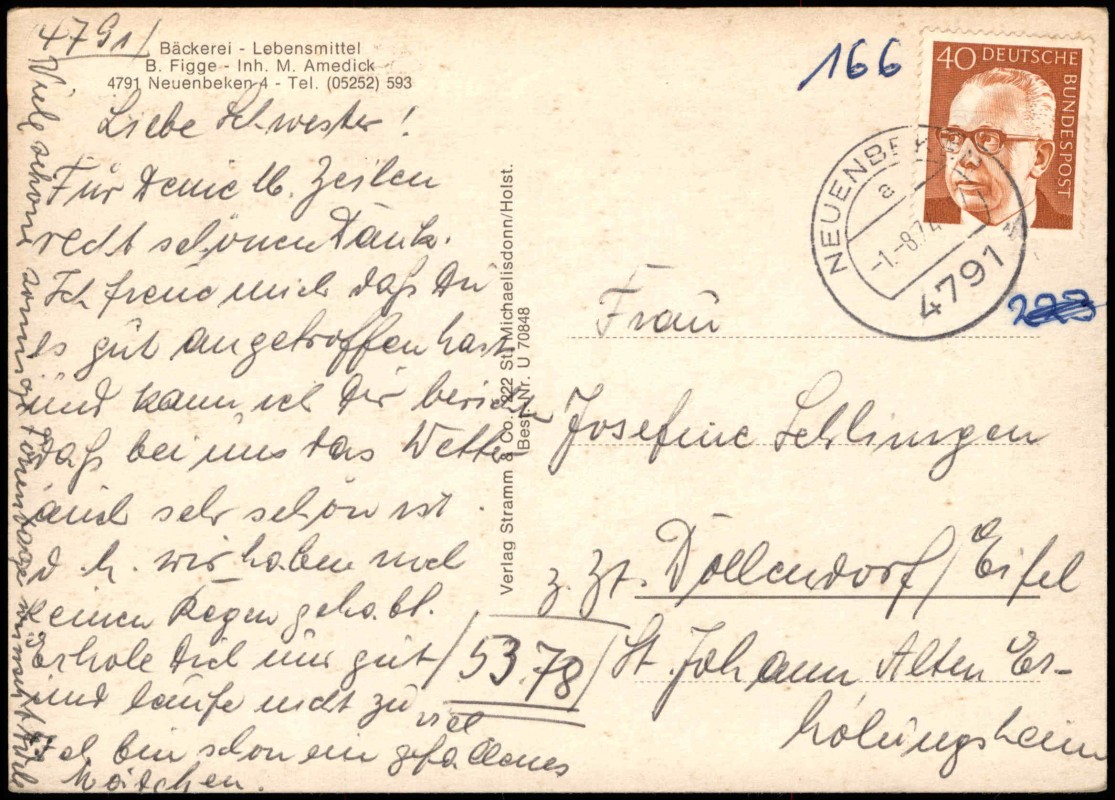 4791/
Bäckerei - Lebensmittel
B. Figge - Inh. M. Amedick
4791 Neuenbeken 4 - Tel. (05252) 593
Liebe Schwester!
Für Deine lb. Zeilen
recht schönen Dank.
Ich freue mich daß Du
es gut angetroffen hast
und kann ich Dir berichten
daß bei uns das Wetter
auch sehr schön ist.
d. h. wir haben noch
keinen Regen gehabt.
Erhole Dich nur gut
und laufe nicht zu viel
Ich bin schon ein gefallenes
Mädchen.
Viele schöne sonnige Tage wünscht Dir
Verlag Stramm & Co. 2222 St. Michaelisdonn/Holst.
Best. Nr. U 70848
166
40 DEUTSCHE
BUNDESPOST
NEUENBEKEN
a
-1.-8.74
4791
Frau
Josefine Schlingen
z. Zt. Döllendorf/Eifel
5378
St. Johann Alten Er-
holungsheim